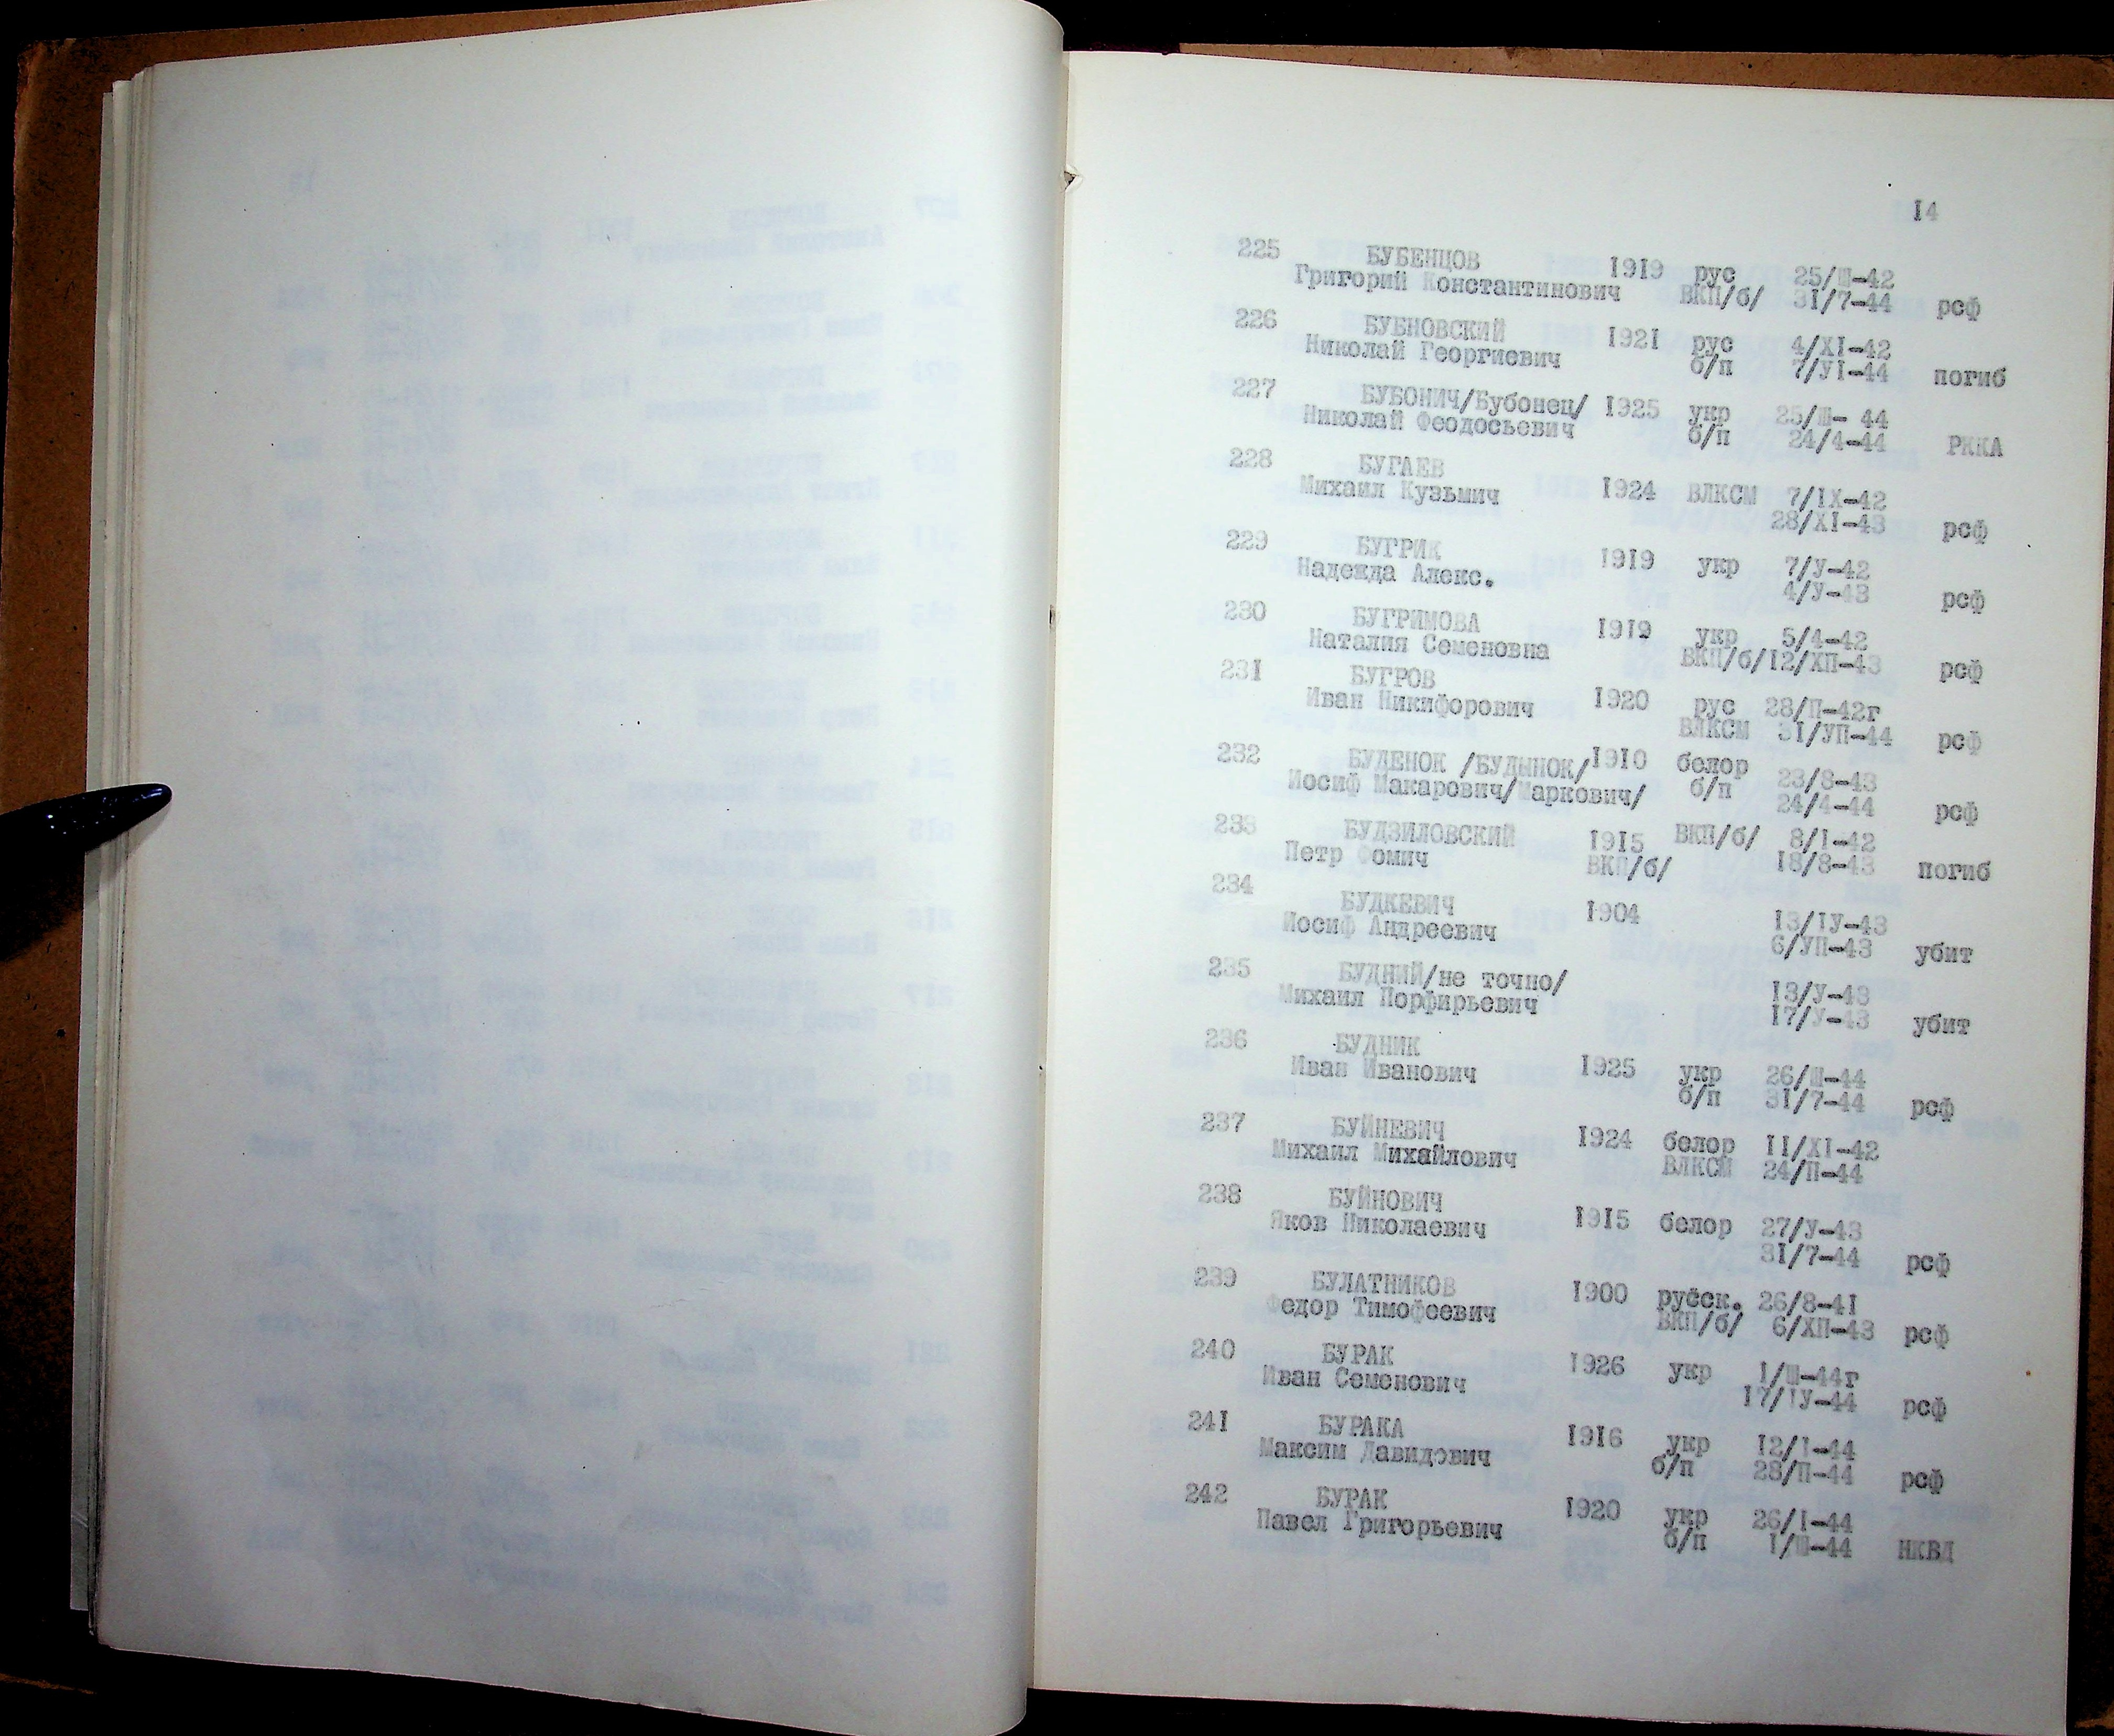 14
225 БУБЕНЦОВ 1919 рус 25/Ш-42
Григорий Константинович ВКП/б/ 31/7-44 рсф
226 БУБНОВСКИЙ 1921 рус 4/XI-42
Николай Георгиевич б/п 7/УI-44 погиб
227 БУБОНИЧ/Бубонец/ 1925 укр 25/Ш- 44
Николай Феодосьевич б/п 24/4-44 РККА
228 БУГАЕВ
Михаил Кузьмич 1924 ВЛКСМ 7/IX-42
28/XI-43 рсф
229 БУГРИК 1919 укр 7/У-42
Надежда Алекс. 4/У-43 рсф
230 БУГРИМОВА 1919 укр 5/4-42
Наталия Семеновна ВКП/б/12/ХП-43 рсф
231 БУГРОВ
Иван Никифорович 1920 рус 28/П-42г
ВЛКСМ 31/УП-44 рсф
232 БУДЕНОК /БУДЫНОК/ 1910 белор 23/8-43
Иосиф Макарович/Маркович/ б/п 24/4-44 рсф
233 БУДЗИЛОВСКИЙ 1915 ВКП/б/ 8/I-42
Петр Фомич ВКП/б/ 18/8-43 погиб
234 БУДКЕВИЧ 1904 13/IУ-43
Иосиф Андреевич 6/УП-43 убит
235 БУДНИЙ/не точно/ 13/У-43
Михаил Порфирьевич 17/У-43 убит
236 БУДНИК
Иван Иванович 1925 укр 26/Ш-44
б/п 31/7-44 рсф
237 БУЙНЕВИЧ 1924 белор 11/XI-42
Михаил Михайлович ВЛКСМ 24/П-44
238 БУЙНОВИЧ
Яков Николаевич 1915 белор 27/У-43
31/7-44 рсф
239 БУЛАТНИКОВ 1900 русск. 26/8-41
Федор Тимофеевич ВКП/б/ 6/ХП-43 рсф
240 БУРАК 1926 укр 1/Ш-44г
Иван Семенович 17/IУ-44 рсф
241 БУРАКА 1916 укр 12/I-44
Максим Давидович б/п 28/П-44 рсф
242 БУРАК 1920 укр 26/I-44
Павел Григорьевич б/п 1/Ш-44 НКВД